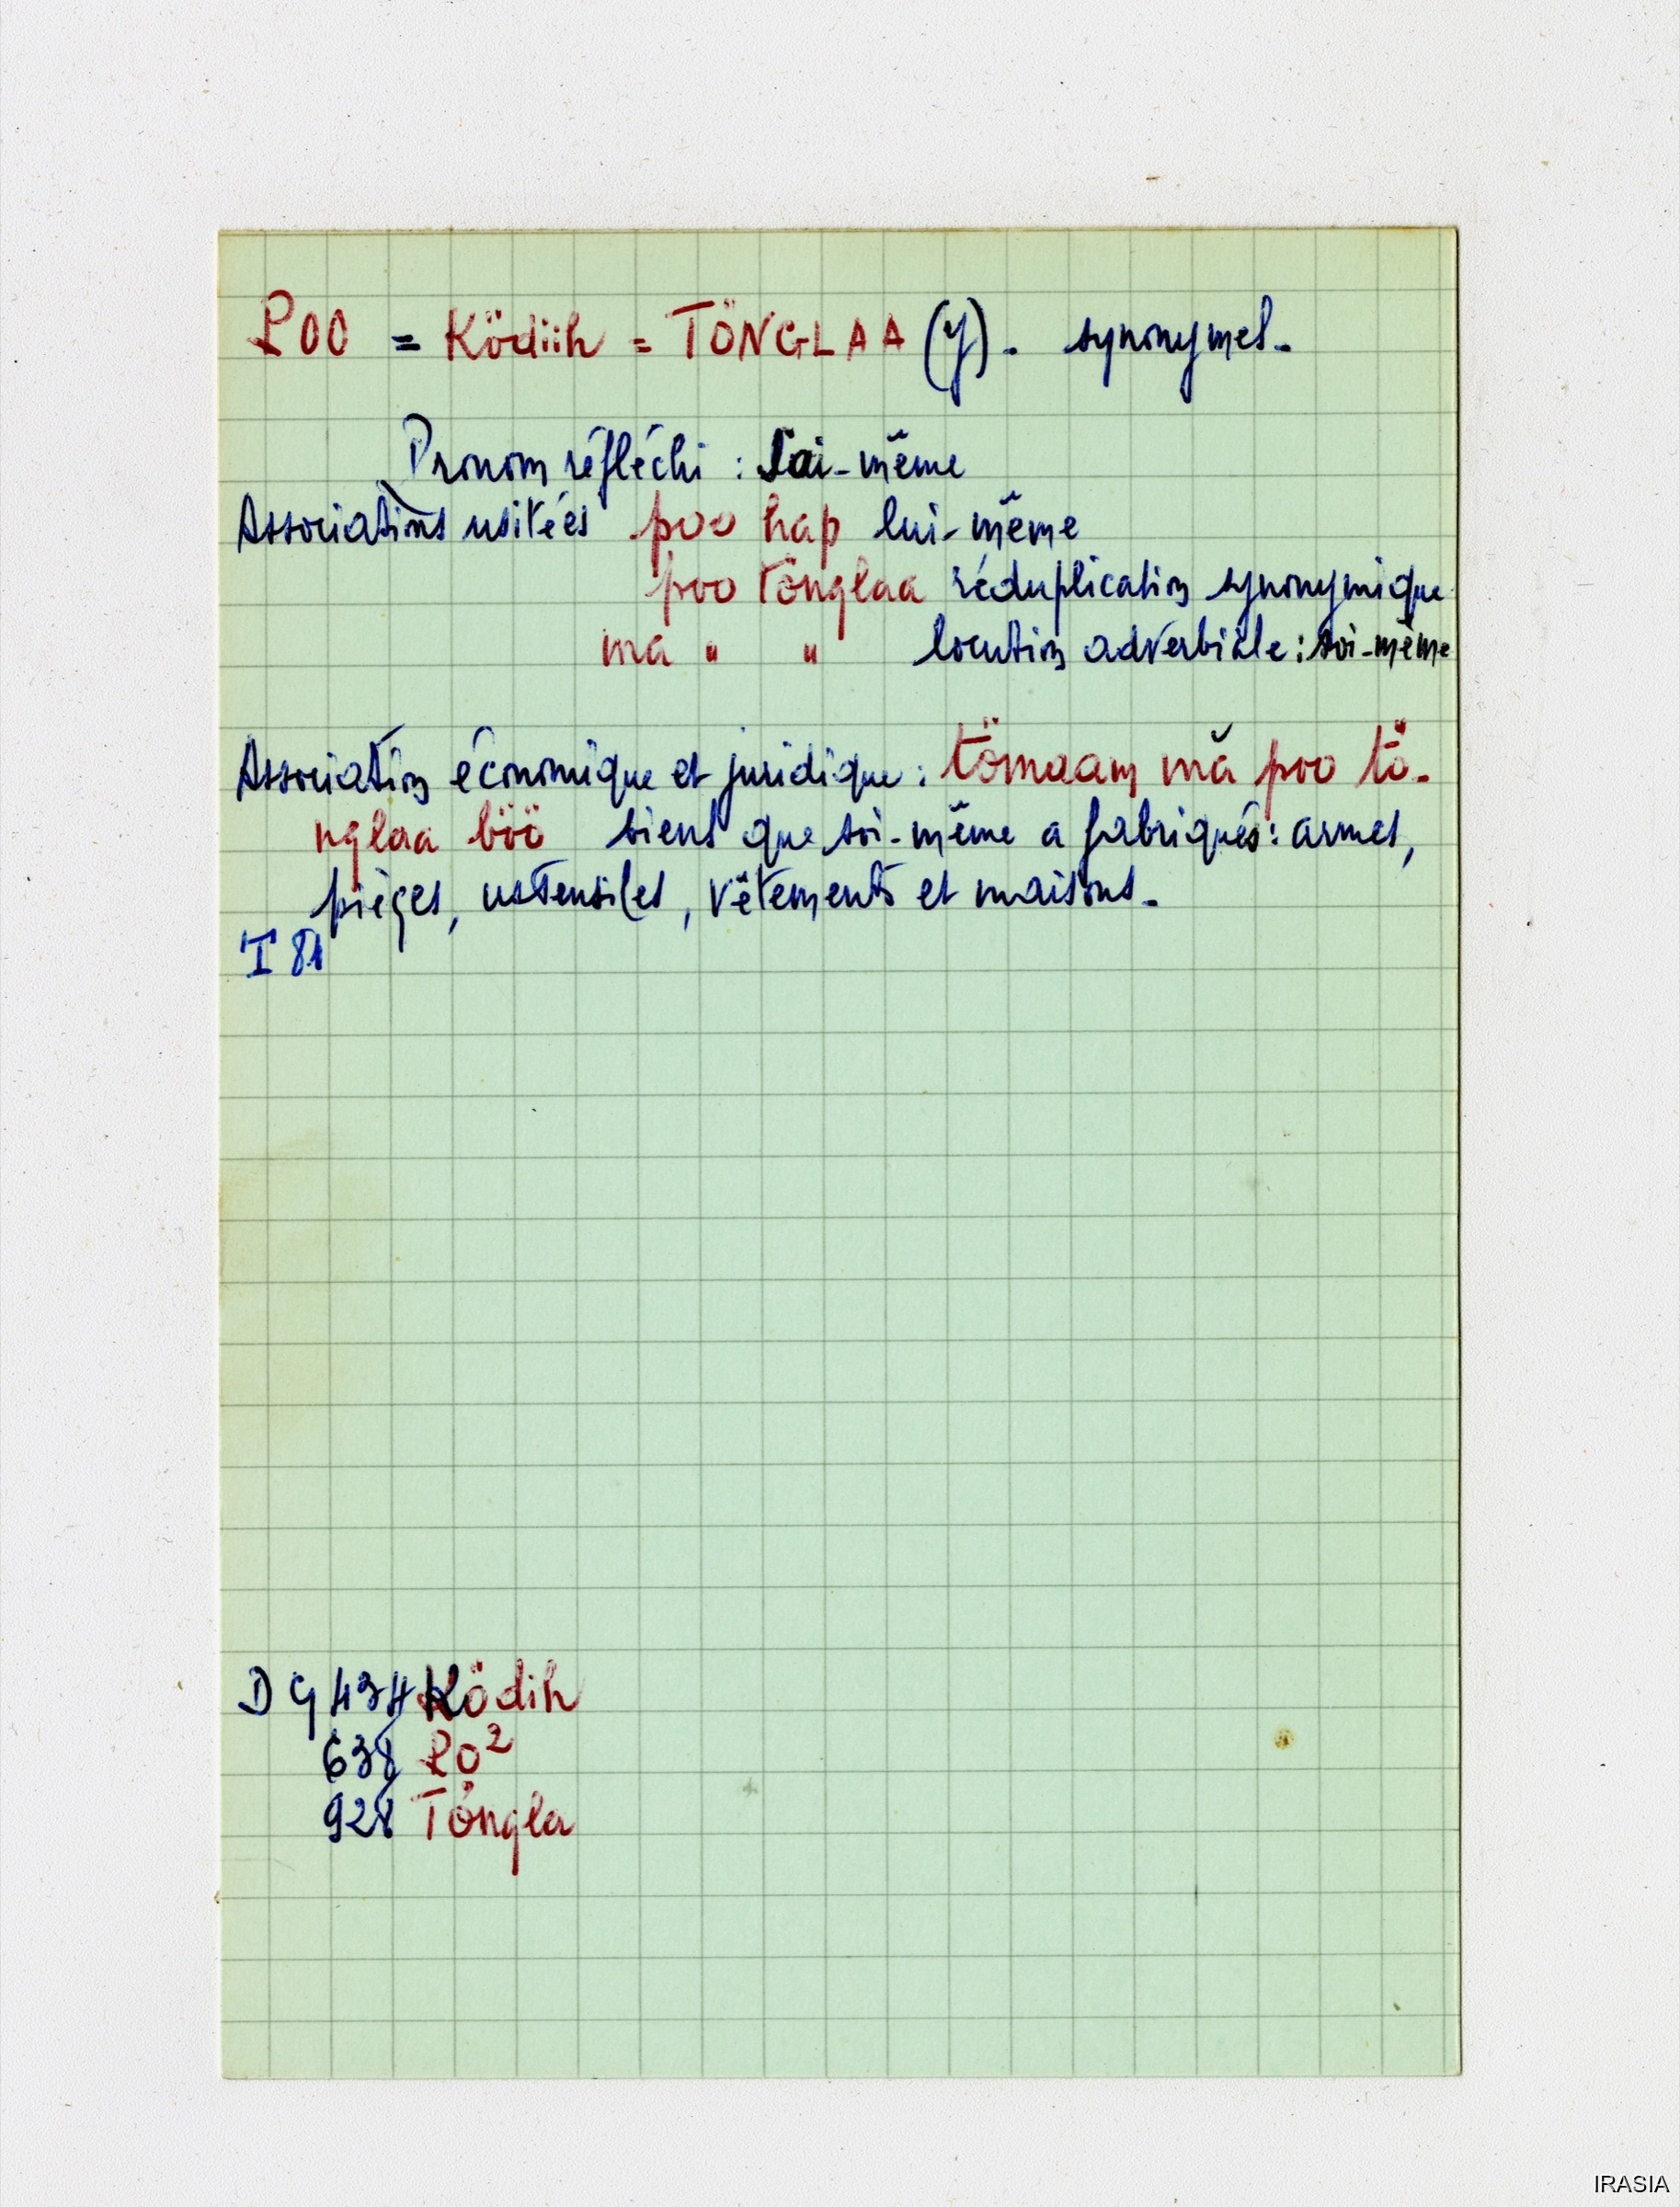 POO = Ködiih = TÖNGLAA (y). synonymes.
Pronom réfléchi : Soi-même
Associations usitées poo hap lui-même
poo tönglaa réduplication synonymique
ma " " locution adverbiale : soi-même
Association économique et juridique : tömaam mă poo tö-
nglaa böö biens que soi-même a fabriqués : armes,
pièges, ustensiles, vêtements et maisons.
I 81
DG 434 Ködih
638 PO²
928 Töngla
IRASIA